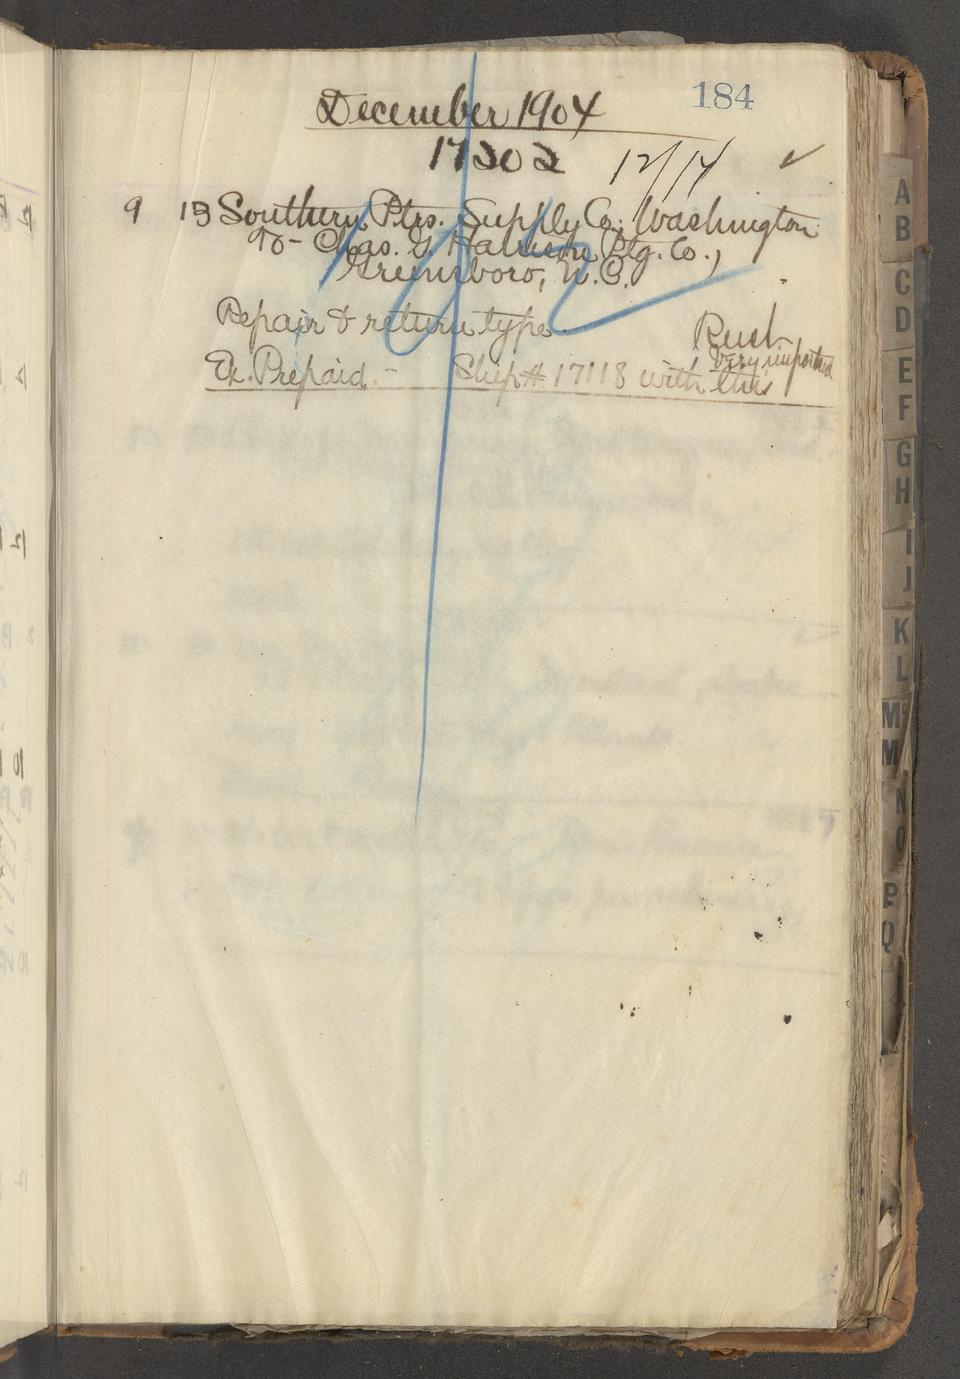 184
December 1904
17202 12/14 ✓
9 13 Southern Ptrs. Supply Co., Washington
To - Chas. G. Harrison Ptg. Co.,
Greensboro, N.C.
Repair & return type.
Rush
Very important
Ex. Prepaid. - Ship # 17118 with this
A
B
C
D
E
F
G
H
I
J
K
L
Mc
M
N
O
P
Q